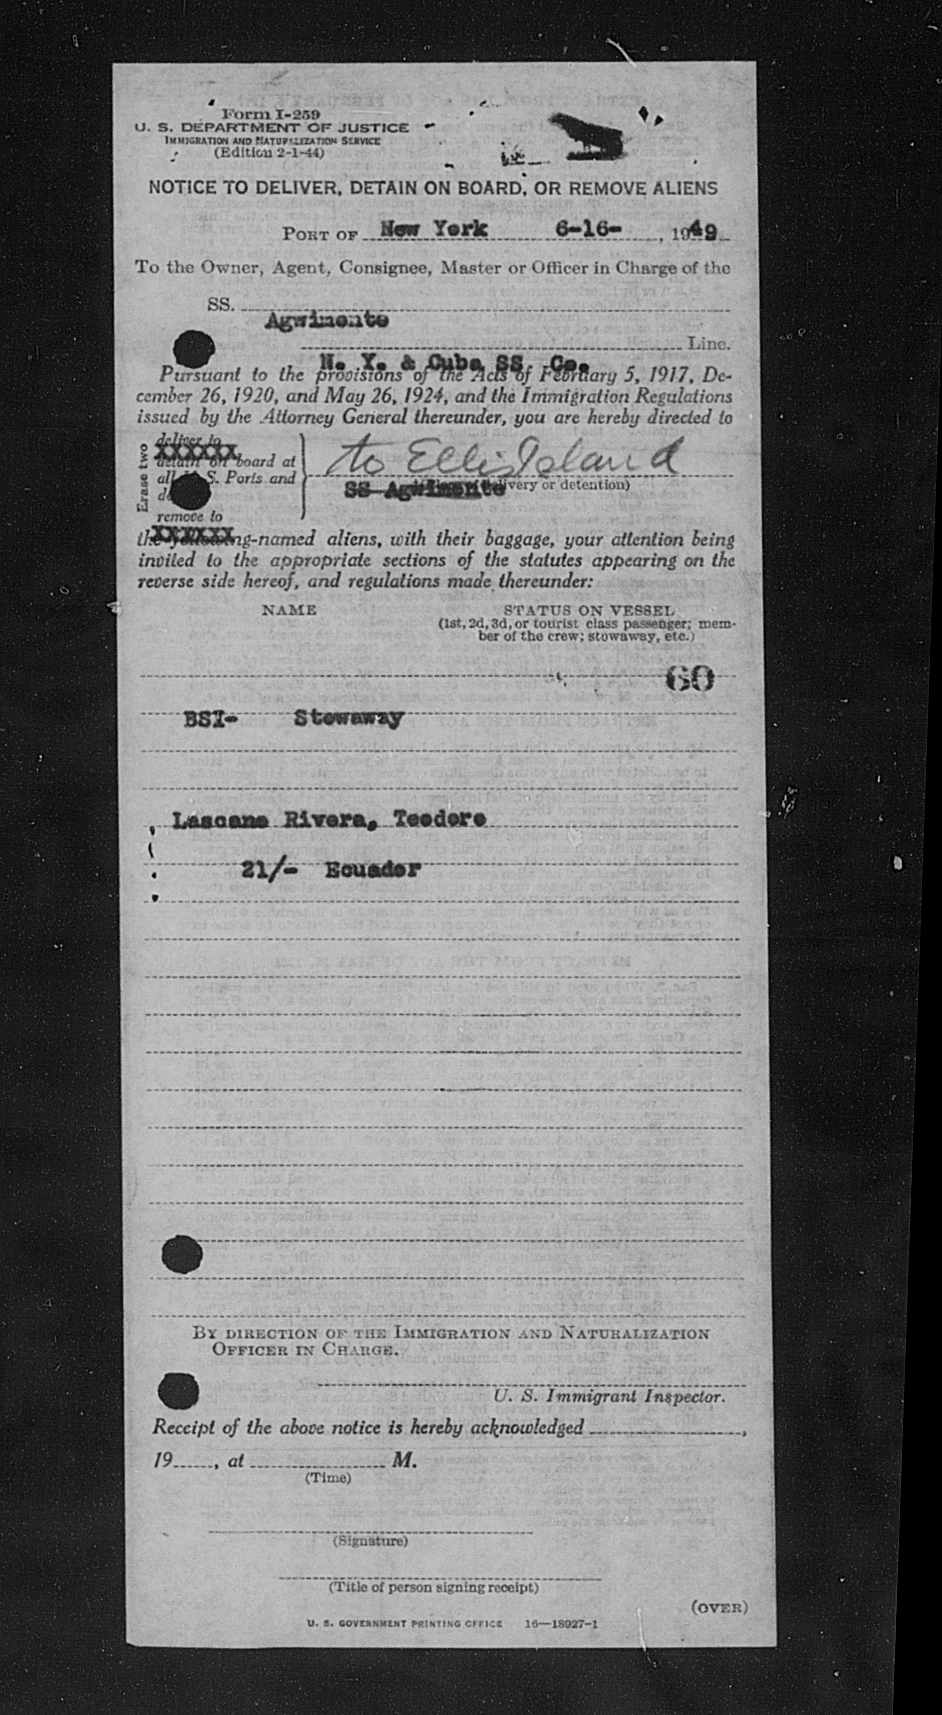 Form I-259
U. S. DEPARTMENT OF JUSTICE
IMMIGRATION AND NATURALIZATION SERVICE
(Edition 2-1-44)
NOTICE TO DELIVER, DETAIN ON BOARD, OR REMOVE ALIENS
PORT OF New York 6-16-, 1949
To the Owner, Agent, Consignee, Master or Officer in Charge of the
SS.
Agwimonte
Line.
N. Y. & Cuba SS. Co.
Pursuant to the provisions of the Acts of February 5, 1917, De-
cember 26, 1920, and May 26, 1924, and the Immigration Regulations
issued by the Attorney General thereunder, you are hereby directed to
Erase two
deliver to
XXXXXX
detain on board at
all U. S. Ports and
remove to
XXXXXX
to Ellis Island
SS Agwimonte
delivery or detention)
the following-named aliens, with their baggage, your attention being
invited to the appropriate sections of the statutes appearing on the
reverse side hereof, and regulations made thereunder:
NAME STATUS ON VESSEL
(1st, 2d, 3d, or tourist class passenger; mem-
ber of the crew; stowaway, etc.)
60
BSI- Stowaway
Lascano Rivera, Teodoro
21/- Ecuador
BY DIRECTION OF THE IMMIGRATION AND NATURALIZATION
OFFICER IN CHARGE.
U. S. Immigrant Inspector.
Receipt of the above notice is hereby acknowledged ,
19 , at M.
(Time)
(Signature)
(Title of person signing receipt)
(OVER)
U. S. GOVERNMENT PRINTING OFFICE 16—18927-1